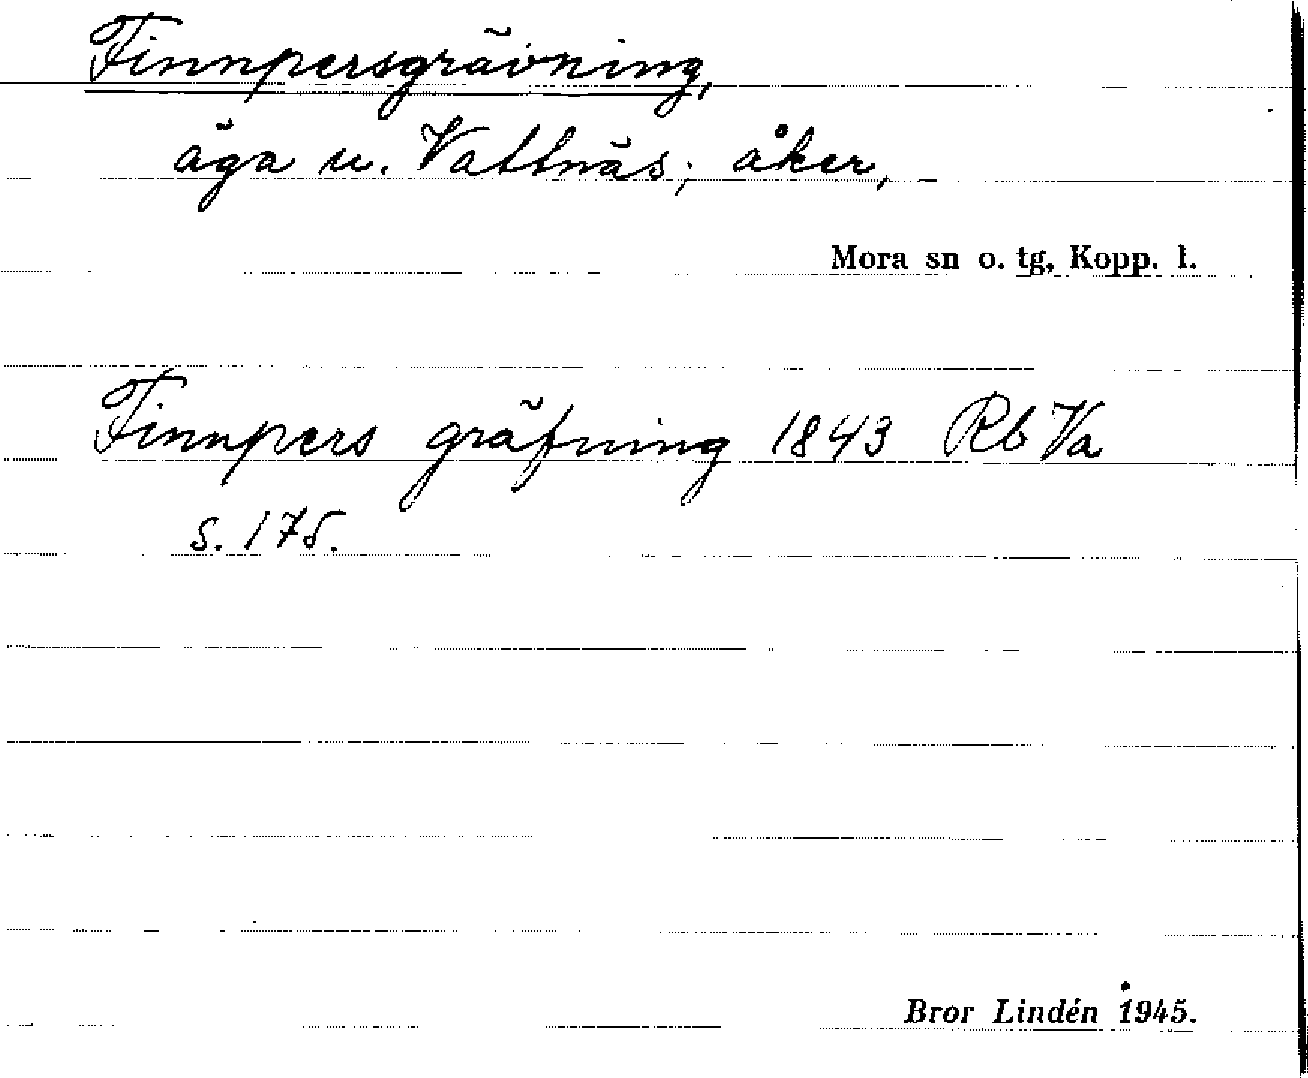 Finnpersgrävning,
äga u. Vattnäs; åker,
Mora sn o. tg, Kopp. l.
Finnpers gräfning 1843 Rb Va
s. 178.
Bror Lindén 1945.